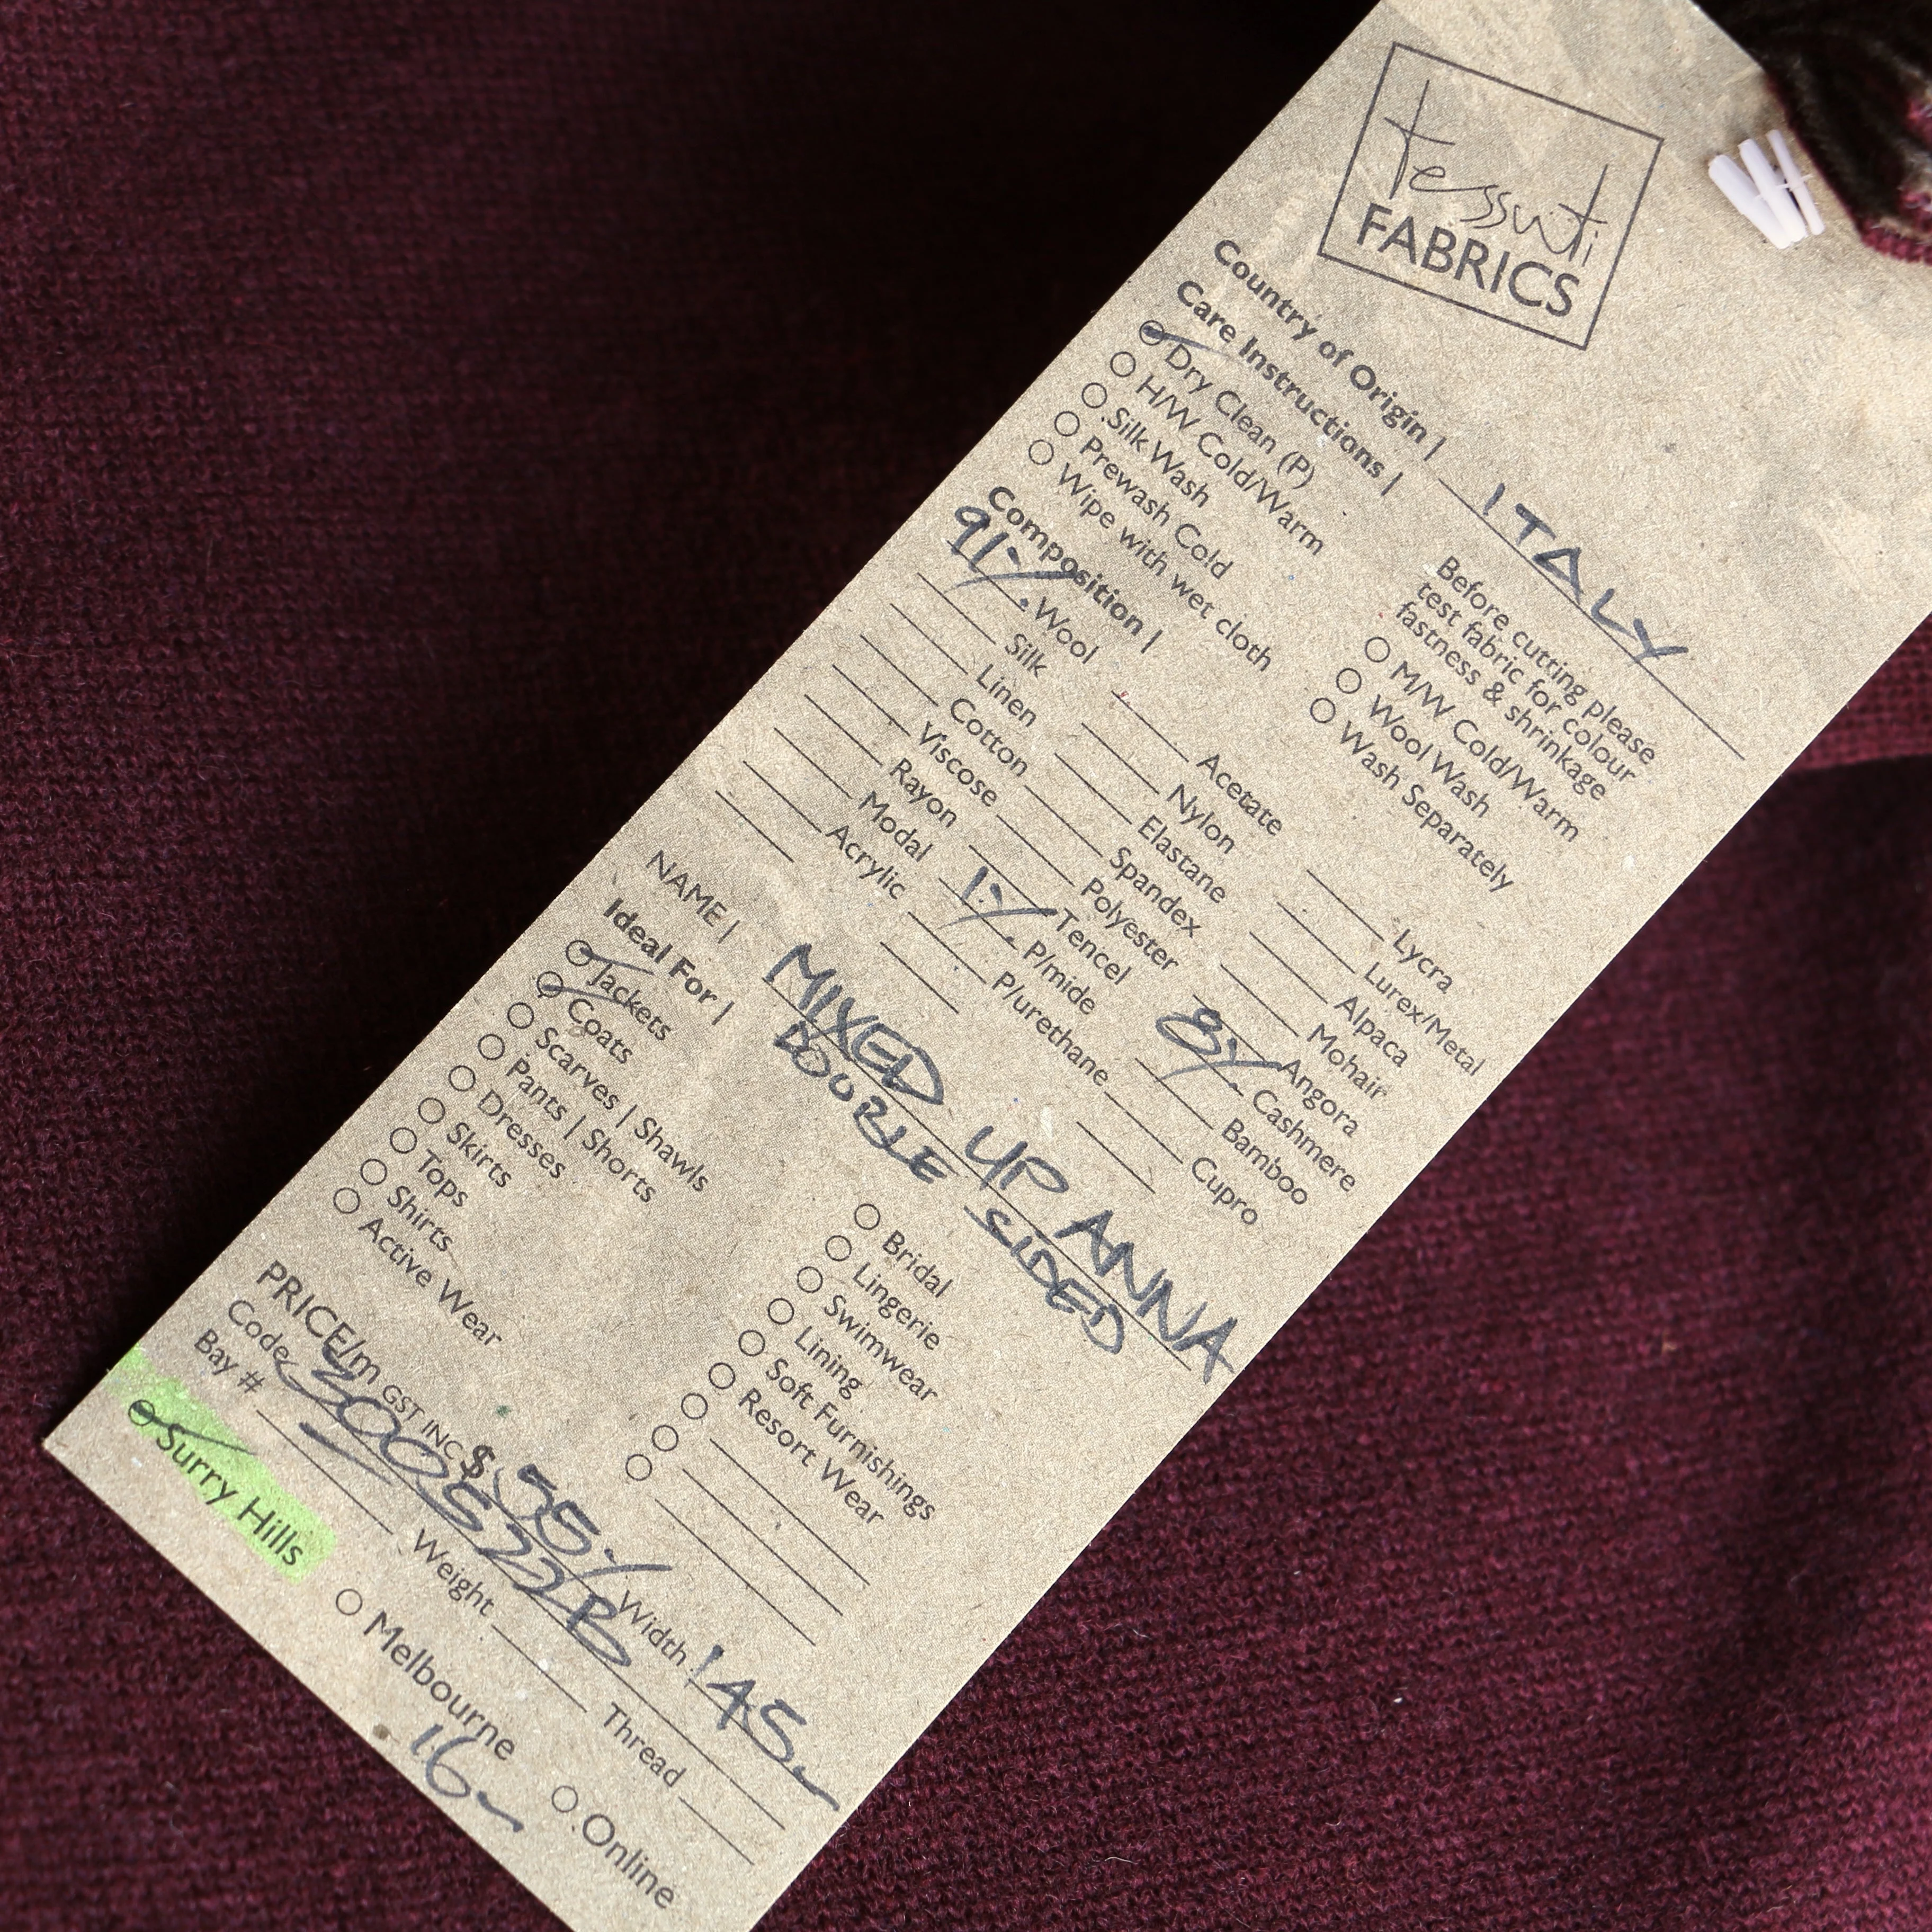 tessuti
FABRICS
Country of Origin | ITALY
Care Instructions |
Dry Clean (P)
H/W Cold/Warm
Silk Wash
Prewash Cold
Wipe with wet cloth
Before cutting please
test fabric for colour
fastness & shrinkage
M/W Cold/Warm
Wool Wash
Wash Separately
Composition |
91% Wool
Silk
Linen
Cotton
Viscose
Rayon
Modal
Acrylic
Acetate
Nylon
Elastane
Spandex
Polyester
Tencel
1% P/mide
P/urethane
Lycra
Lurex/Metal
Alpaca
Mohair
Angora
8% Cashmere
Bamboo
Cupro
NAME | MIXED UP ANNA
DOUBLE SIDED
Ideal For |
Jackets
Coats
Scarves | Shawls
Pants | Shorts
Dresses
Skirts
Tops
Shirts
Active Wear
Bridal
Lingerie
Swimwear
Lining
Soft Furnishings
Resort Wear
PRICE/m GST INC $ 55 Width 145
Code 300522B
Bay # Weight Thread
Surry Hills Melbourne Online
16